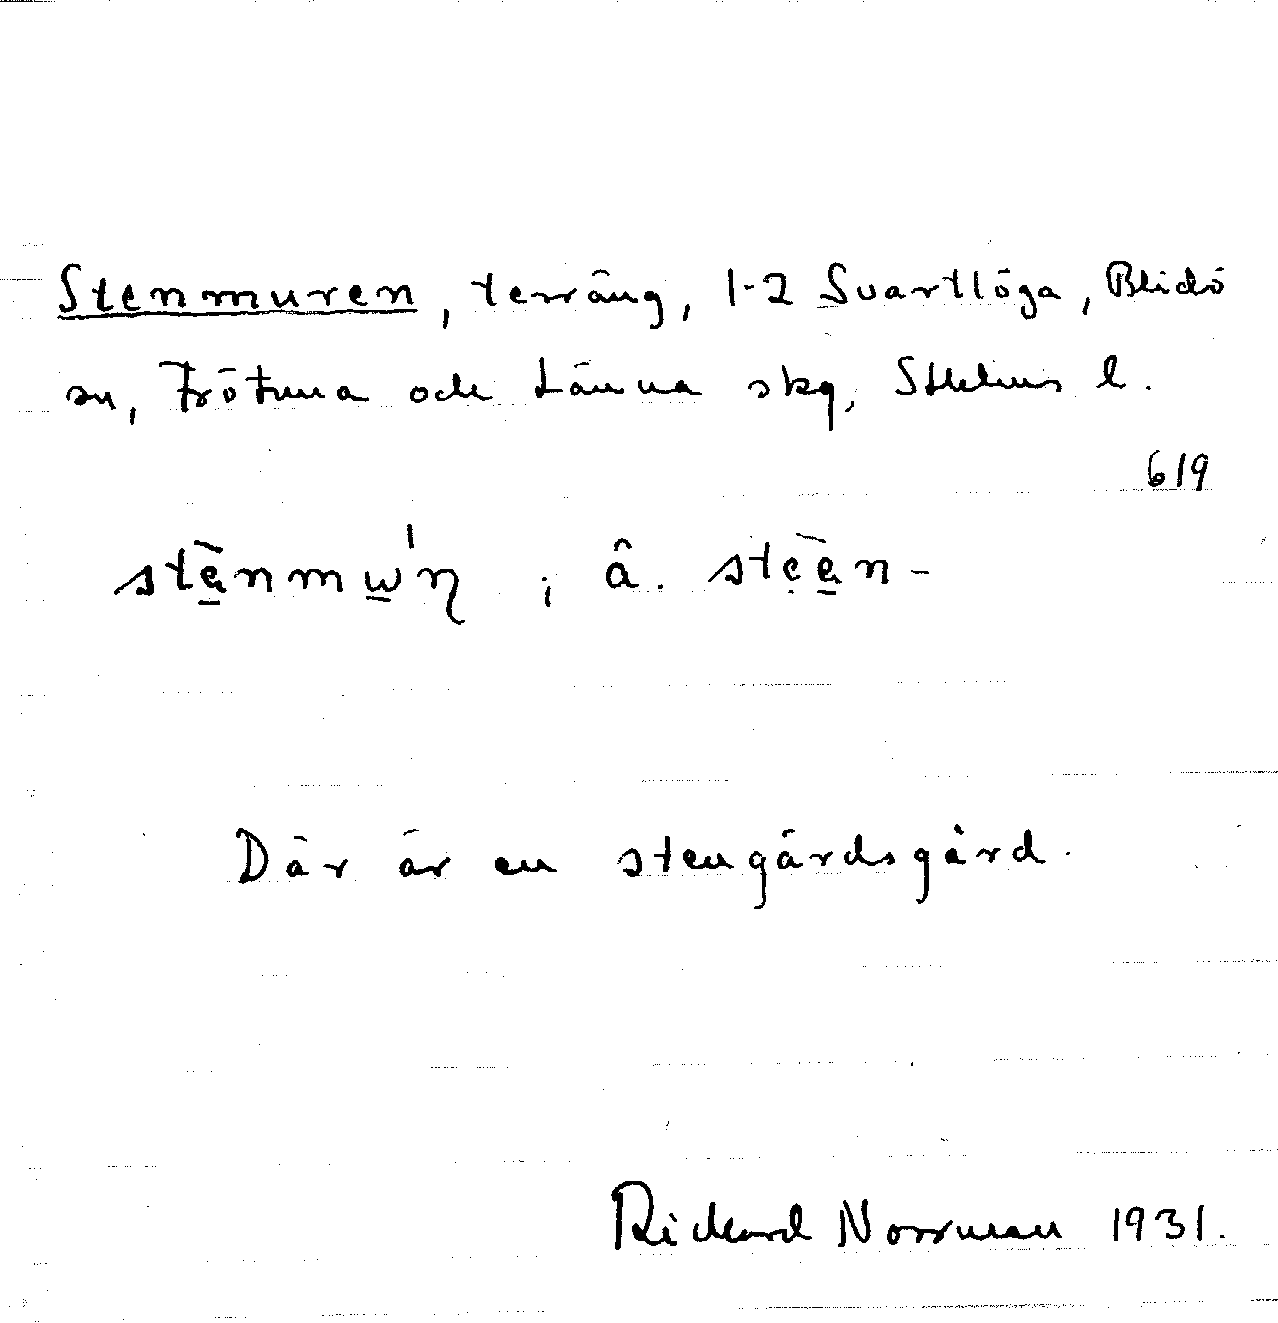 Stenmuren, terräng, 1-2 Svartlöga, Blidö
sn, Frötuna och Länna skg, Sthlms l.
619
stēnmẁn ; â. steèn-
Där är en stengärdsgård.
Rickard Norrman 1931.